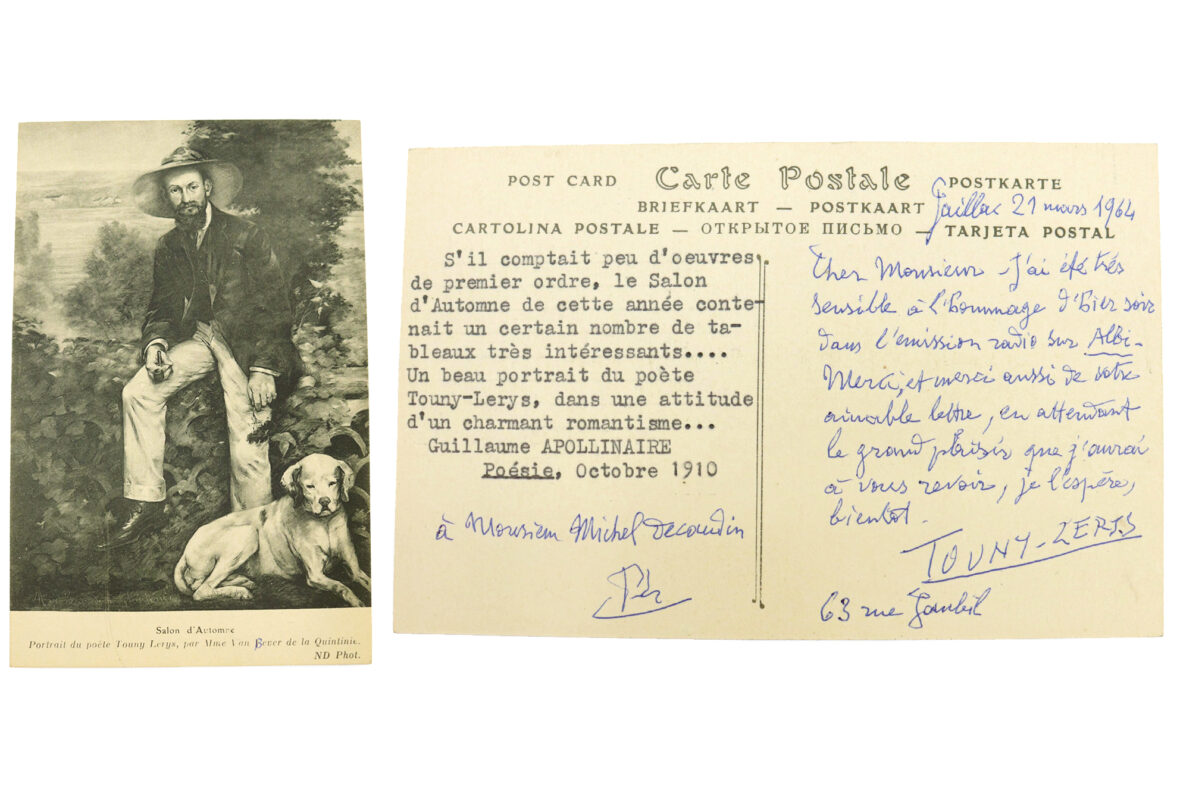 Salon d'Automne
Portrait du poète Touny Lerys, par Mme Van Bever de la Quintinie.
ND Phot.
POST CARD Carte Postale POSTKARTE
BRIEFKAART — POSTKAART
CARTOLINA POSTALE — ОТКРЫТОЕ ПИСЬМО — TARJETA POSTAL
S'il comptait peu d'oeuvres
de premier ordre, le Salon
d'Automne de cette année conte-
nait un certain nombre de ta-
bleaux très intéressants....
Un beau portrait du poète
Touny-Lerys, dans une attitude
d'un charmant romantisme...
Guillaume APOLLINAIRE
Poésie, Octobre 1910
à Monsieur Michel Decaudin
Gaillac 21 mars 1964
Cher Monsieur - J'ai été très
sensible à l'hommage d'hier soir
dans l'émission radio sur Albi-
Merci, et merci aussi de votre
aimable lettre, en attendant
le grand plaisir que j'aurai
à vous revoir, je l'espère,
bientot.
TOUNY-LERYS
63 rue